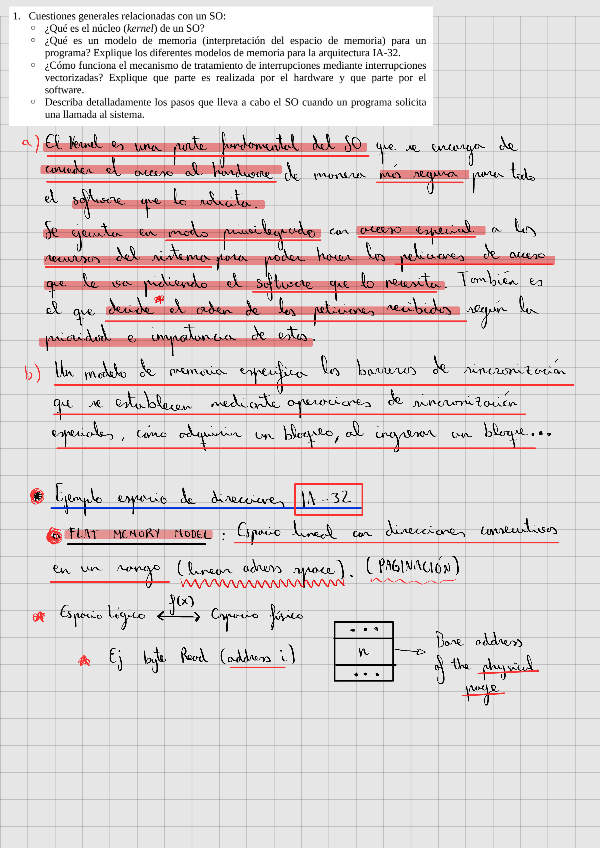 1. Cuestiones generales relacionadas con un SO:
○ ¿Qué es el núcleo (kernel) de un SO?
○ ¿Qué es un modelo de memoria (interpretación del espacio de memoria) para un
programa? Explique los diferentes modelos de memoria para la arquitectura IA-32.
○ ¿Cómo funciona el mecanismo de tratamiento de interrupciones mediante interrupciones
vectorizadas? Explique que parte es realizada por el hardware y que parte por el
software.
○ Describa detalladamente los pasos que lleva a cabo el SO cuando un programa solicita
una llamada al sistema.
a) El Kernel es una parte fundamental del SO que se encarga de
conceder el acceso al hardware de manera más segura para todo
el software que lo solicita.
Se ejecuta en modo privilegiado con acceso especial a los
recursos del sistema para poder hacer las peticiones de acceso
que le va pidiendo el software que lo necesita. También es
el que decide el orden de las peticiones recibidas según la
prioridad e importancia de estas.
b) Un modelo de memoria especifica las barreras de sincronización
que se establecen mediante operaciones de sincronización
especiales, cómo adquirir un bloqueo, al ingresar un bloque...
Ejemplo espacio de direcciones IA-32
FLAT MEMORY MODEL: Espacio lineal con direcciones consecutivas
en un rango (linear adress space). (PAGINACIÓN)
f(x)
Espacio lógico ↔ Espacio físico
Ej byte Read (address i)
...
n
...
→ Base address
of the physical
page